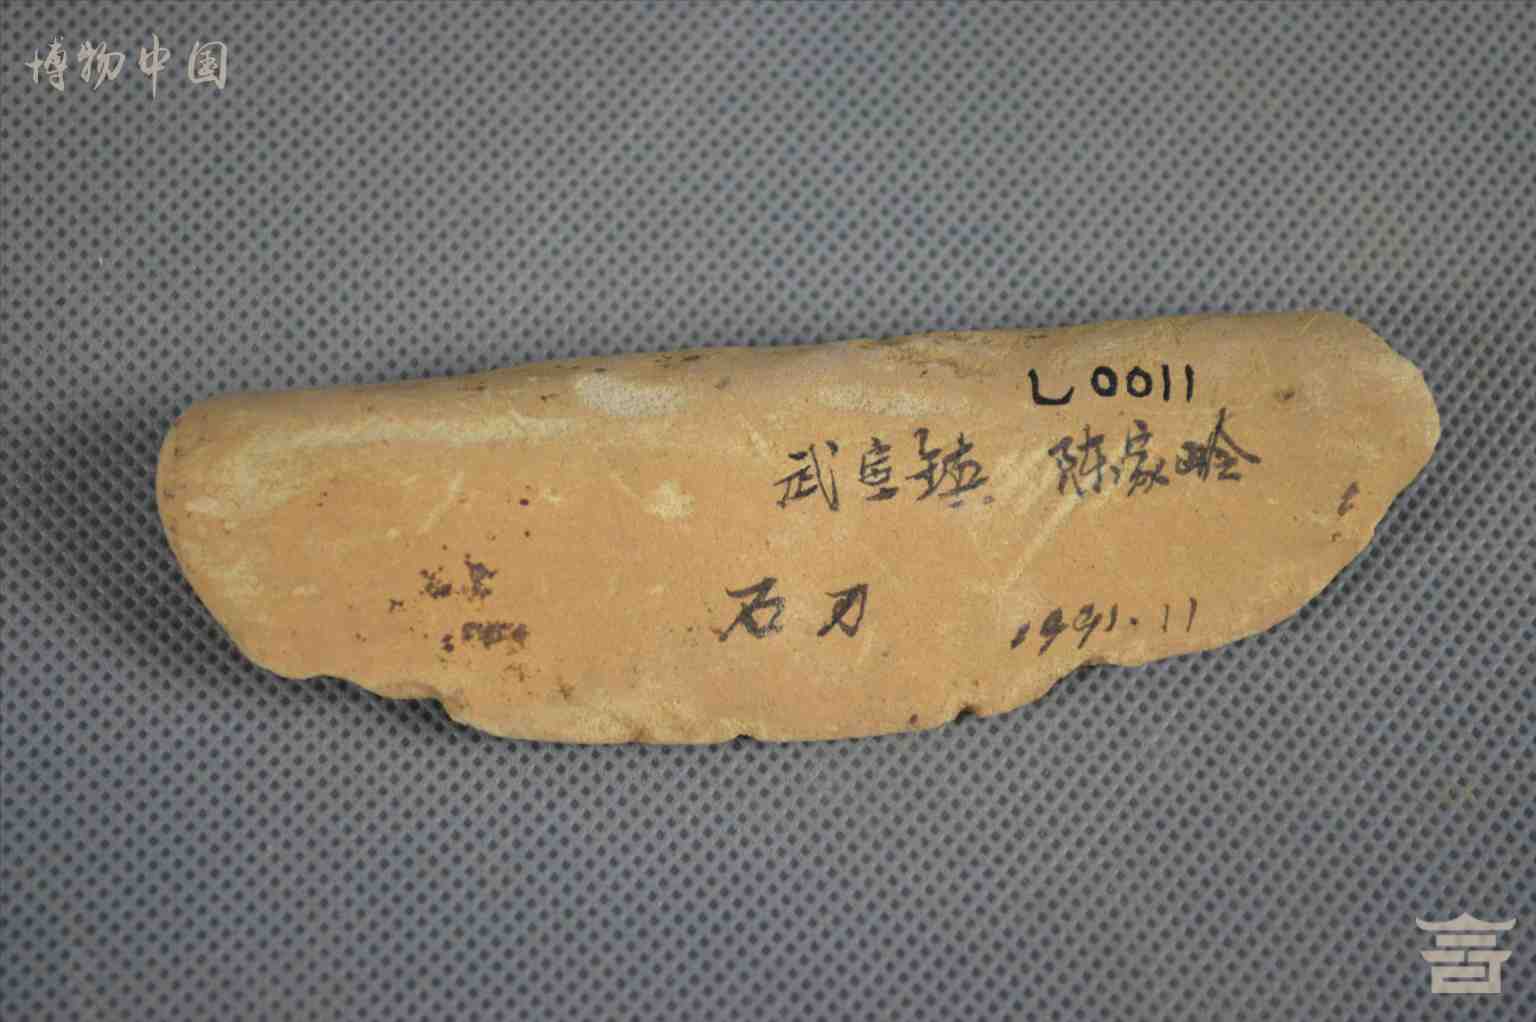 博物中国
L0011
武宣镇 陈家岭
石刀 1991.11